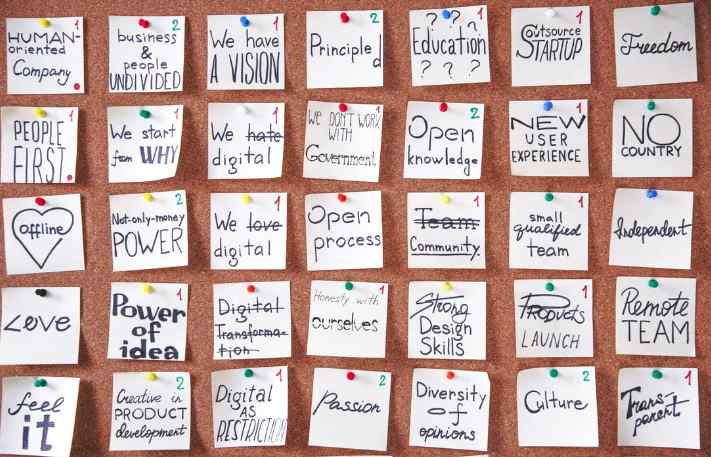 1
HUMAN-
oriented
Company
2
business
&
people
UNDIVIDED
1
We have
A VISION
2
Principled
1
? ? ?
Education
? ? ?
1
Outsource
STARTUP
Freedom
1
PEOPLE
FIRST
We start
from WHY
1
We hate
digital
1
WE DON'T WORK
WITH
Government
2
Open
knowledge
1
NEW
USER
EXPERIENCE
NO
COUNTRY
offline
2
Not-only-money
POWER
1
We love
digital
Open
process
1
Team
Community
1
small
qualified
team
Independent
Love
1
Power
of
idea
Digital
Transforma-
tion
1
Honesty with
ourselves
Strong
Design
Skills
1
Products
LAUNCH
Remote
TEAM
feel
it
2
Creative in
PRODUCT
development
1
Digital
AS
RESTRICTION
2
Passion
Diversity
of
opinions
2
Culture
1
Trans-
parent